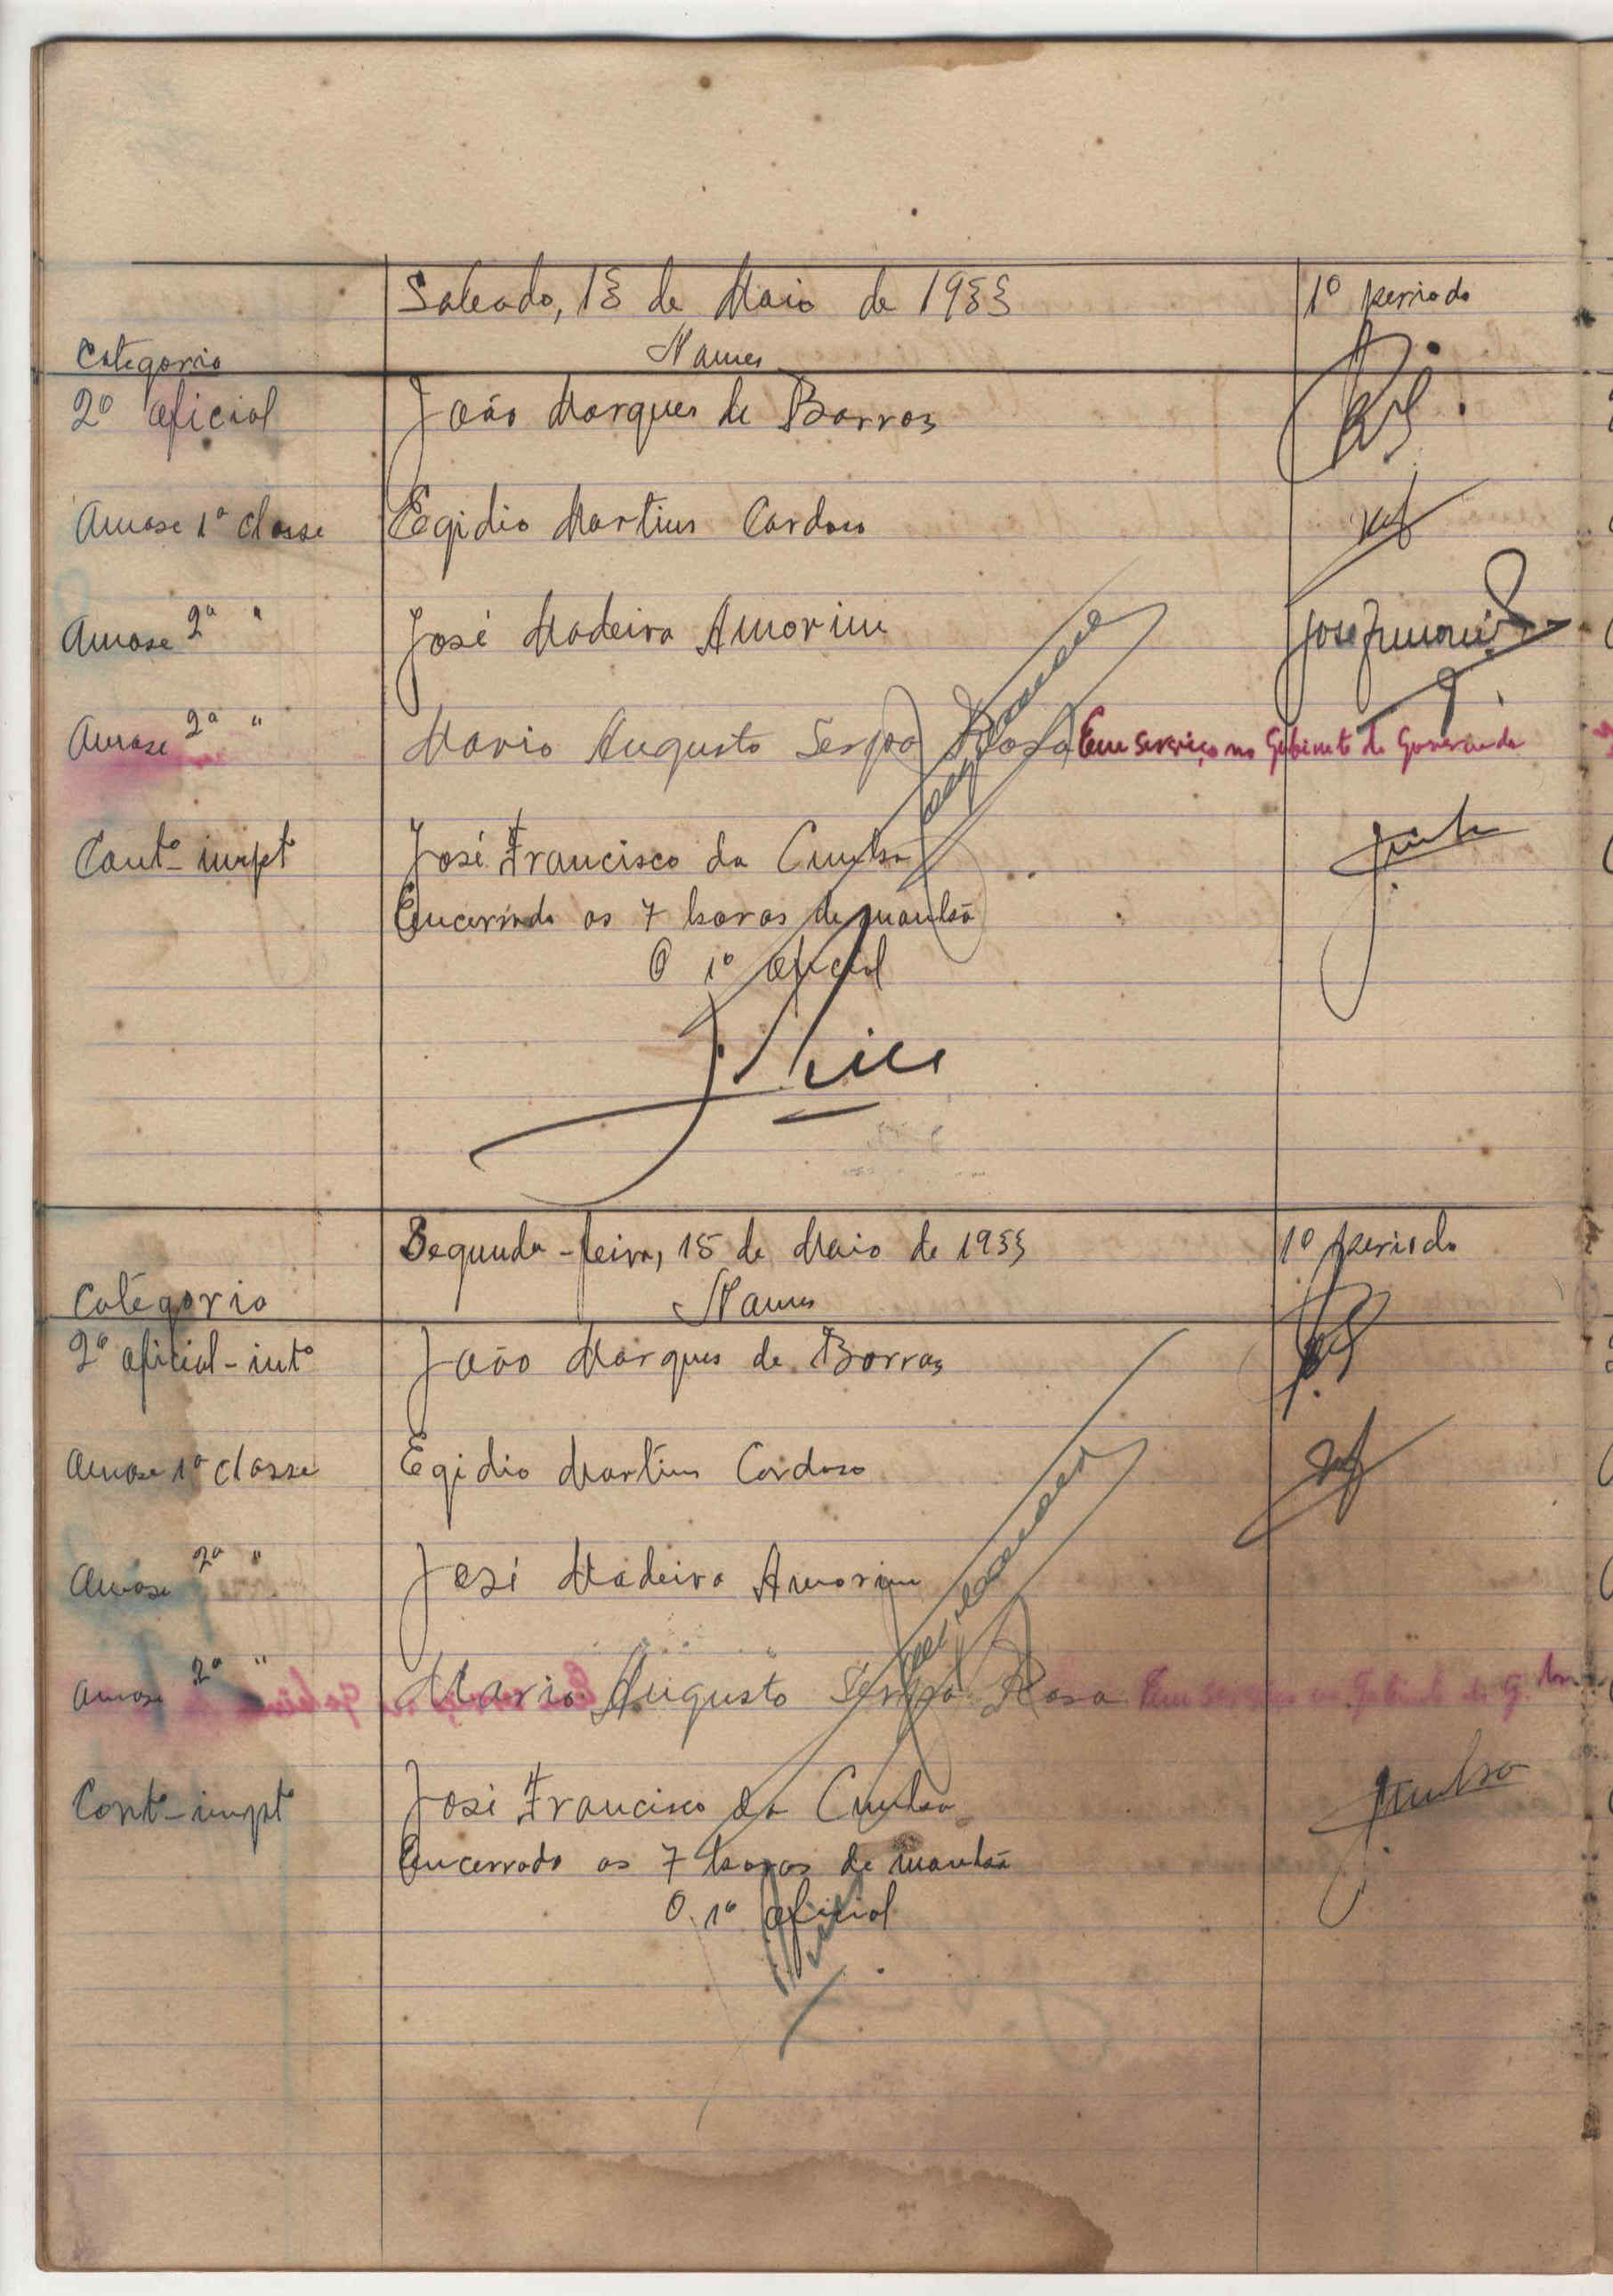 Sabado, 13 de Maio de 1933
1º periodo
Categoria
Nomes
2º oficial
João Marques de Barros
Amase 1ª classe
Egidio Martins Cardoso
Amase 2ª "
José Madeira Amorim
Amase 2ª "
Mario Augusto Serpa Rosa Em serviço no Gabinete do Governo
Contº impt
José Francisco da Cunha
Encerrado as 7 horas da manhã
O 1º oficial
Segunda-feira, 15 de Maio de 1933
1º periodo
Categoria
Nomes
2º oficial-intº
João Marques de Barros
Amase 1ª classe
Egidio Martins Cardoso
Amase 2ª "
José Madeira Amorim
Amase 2ª "
Mario Augusto Serpa Rosa Em serviço no Gabinete do
Contº-impt
José Francisco da Cunha
Encerrado as 7 horas da manhã
O 1º oficial